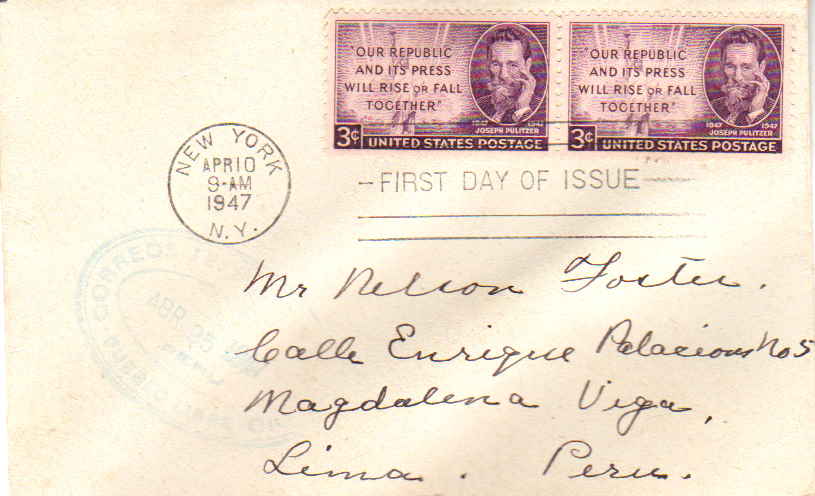 "OUR REPUBLIC
AND ITS PRESS
WILL RISE OR FALL
TOGETHER"
1847 1947
JOSEPH PULITZER
3¢ UNITED STATES POSTAGE
"OUR REPUBLIC
AND ITS PRESS
WILL RISE OR FALL
TOGETHER"
1847 1947
JOSEPH PULITZER
3¢ UNITED STATES POSTAGE
NEW YORK
APR 10
9-AM
1947
N.Y.
FIRST DAY OF ISSUE
CORREOS
ABR 25
PUEBLO LIBRE
Mr Nelson Foster.
Calle Enrique Palacios No 5
Magdalena Vieja,
Lima. Peru.